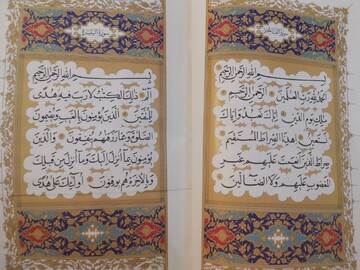 سورة الفاتحة
بسم الله الرحمن الرحيم
الحمد لله رب العلمين الرحمن الرحيم
ملك يوم الدين إياك نعبد وإياك
نستعين اهدنا الصراط المستقيم
صراط الذين أنعمت عليهم غير
المغضوب عليهم ولا الضالين
سورة البقرة
بسم الله الرحمن الرحيم
الم ذلك الكتب لا ريب فيه هدى
للمتقين الذين يؤمنون بالغيب ويقيمون
الصلوة ومما رزقنهم ينفقون والذين
يؤمنون بما أنزل إليك وما أنزل من قبلك
وبالآخرة هم يوقنون أولئك على هدى